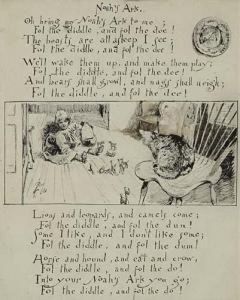 Noah's Ark.
Oh bring my Noah's Ark to me;
Fol the diddle, and fol the dee!
The beasts are all asleep I see;
Fol the diddle, and fol the dee!
We'll wake them up, and make them play;
Fol the diddle, and fol the dee!
And bears shall growl, and nags shall neigh;
Fol the diddle, and fol the dee!
Lions and leopards, and camels come;
Fol the diddle, and fol the dum!
Some I like, and I don't like some;
Fol the diddle, and fol the dum!
Horse and hound, and cat and crow,
Fol the diddle, and fol the do!
Into your Noah's Ark you go;
Fol the diddle, and fol the do!